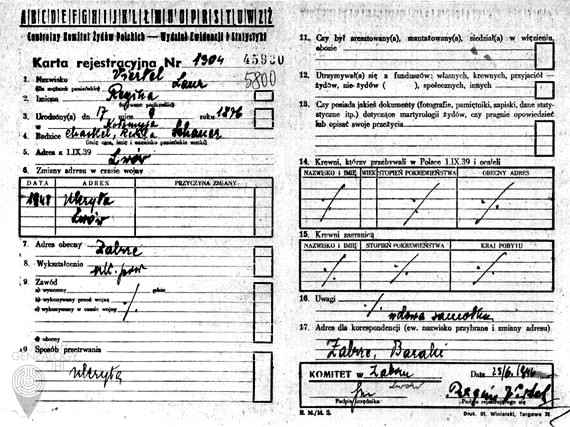 A B C D E F G H I J K L Ł M N O P R S T U W Z Ż
Centralny Komitet Żydów Polskich — Wydział Ewidencji i Statystyki
Karta rejestracyjna Nr 1304 45930
5800
1. Nazwisko Viertel
Laur
2. Imiona Regina
3. Urodzony(a) dn. 17 mies. 9 roku 1876
w Kołomyja
4. Rodzice
5. Adres z 1.IX.39 Lwów
6. Zmiany adresu w czasie wojny
DATA ADRES PRZYCZYNA ZMIANY
Ukryta
Lwów
7. Adres obecny Zabrze
8. Wykształcenie
9. Zawód
a) wyuczony gdzie
b) wykonywany przed wojną
c) wykonywany w czasie wojny
d) obecny
Sposób przetrwania
Ukryta
11. Czy był aresztowany(a), maltretowany(a), siedział(a) w więzieniu,
obozie
12. Utrzymywał(a) się z funduszów: własnych, krewnych, przyjaciół —
żydów, nie żydów ( ), społecznych, innych
13. Czy posiada jakieś dokumenty (fotografie, pamiętniki, zapiski, dane staty-
styczne itp.) dotyczące martyrologii żydów, czy pragnie opowiedzieć
lub opisać swoje przeżycia
14. Krewni, którzy przebywali w Polsce 1.IX.39 i ocaleli
NAZWISKO i IMIĘ WIEK STOPIEŃ POKREWIEŃSTWA OBECNY ADRES
15. Krewni zagranicą
NAZWISKO i IMIĘ STOPIEŃ POKREWIEŃSTWA KRAJ POBYTU
16. Uwagi
wdowa samotna
17. Adres dla korespondencji (ew. nazwisko przybrane i zmiany adresu)
Zabrze, Baraki
KOMITET w Zabrzu Data 25/6 1946
Lwów
Podpis urzędnika Podpis rejestrującego się
Druk. St. Winiarski, Targowa